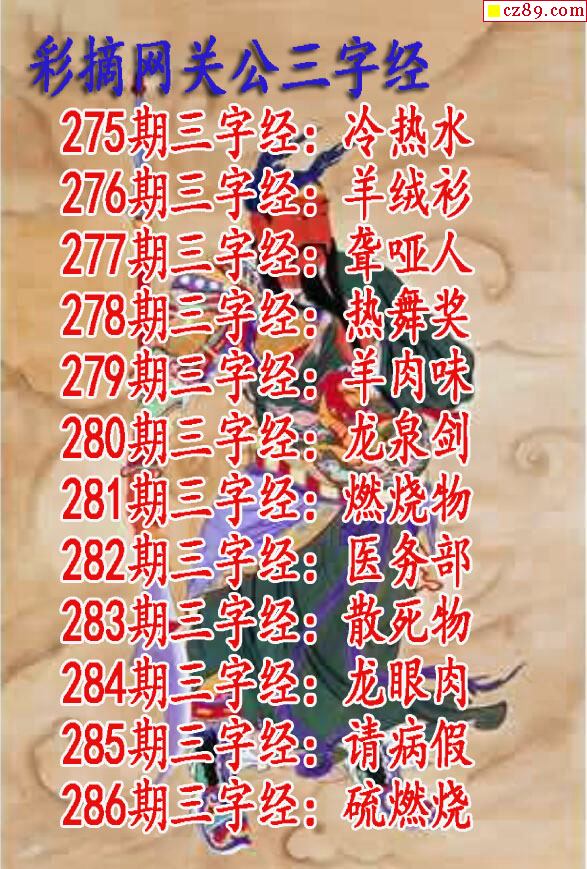 cz89.com
彩摘网关公三字经
275期三字经：冷热水
276期三字经：羊绒衫
277期三字经：聋哑人
278期三字经：热舞奖
279期三字经：羊肉味
280期三字经：龙泉剑
281期三字经：燃烧物
282期三字经：医务部
283期三字经：散死物
284期三字经：龙眼肉
285期三字经：请病假
286期三字经：硫燃烧